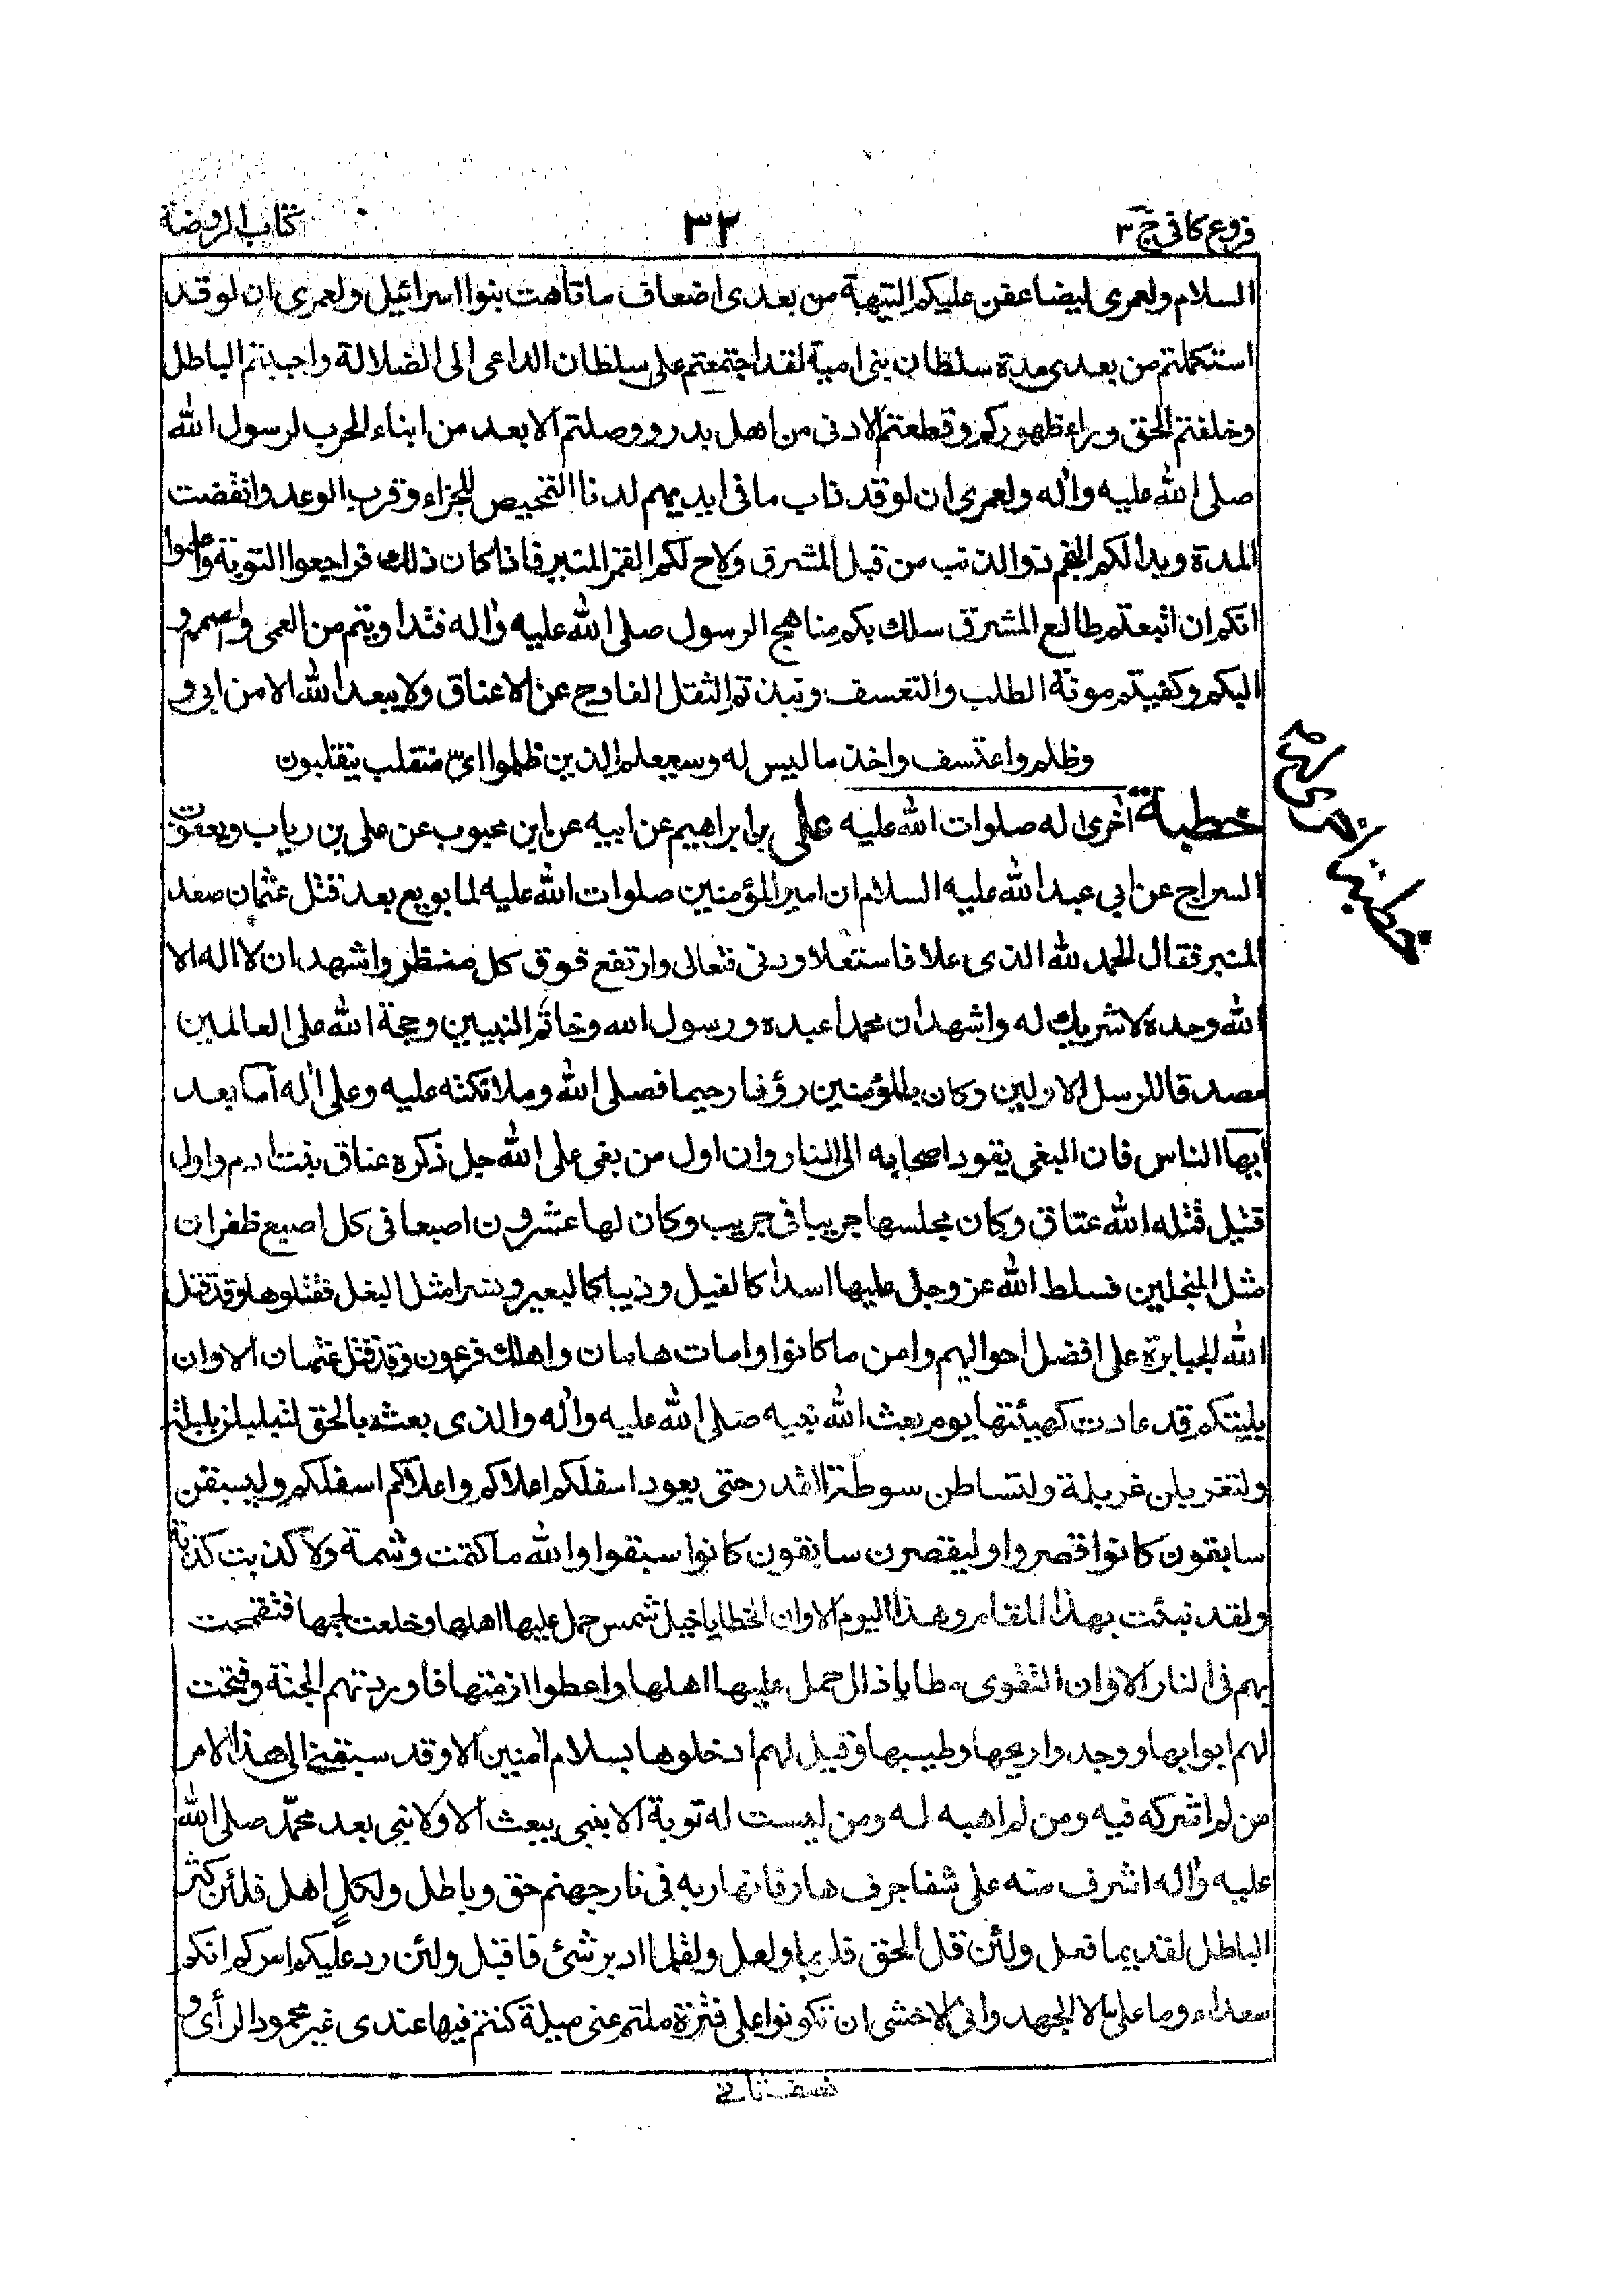 فروع كافى ج ٣
٣٢
كتاب الروضة
السلام ولعمرى ليضاعفن عليكم التيهة من بعدى اضعاف ما تاهت بنوا اسرائيل ولعمرى ان لو قد
استكملتم من بعدى مدة سلطان بنى امية لقد اجتمعتم على سلطان الداعى الى الضلالة واجبيتم الباطل
وخلفتم الحق وراء ظهوركم وقطعتم الادنى من اهل بدر ووصلتم الابعد من ابناء الحرب لرسول الله
صلى الله عليه واله ولعمرى ان لو قد ذاب ما فى ايديهم لدنا التمحيص للجزاء وقرب الوعد وانقضت
المدة وبدا لكم النجم ذو الذنب من قبل المشرق ولاح لكم القمر المنير فاذا كان ذلك فراجعوا التوبة واعلموا
انكم ان اتبعتم طالع المشرق سلك بكم مناهج الرسول صلى الله عليه واله فتداويتم من العمى والصمم و
البكم وكفيتم مونة الطلب والتعسف ونبذتم الثقل الفادح عن الاعناق ولا يبعد الله الا من ابى و
وظلم واعتسف واخذ ما ليس له وسيعلم الذين ظلموا اىّ منقلب ينقلبون
خطبة اخرى له صلوات الله عليه على بن ابراهيم عن ابيه عن ابن محبوب عن على بن رياب ويعقوب
السراج عن ابي عبد الله عليه السلام ان امير المؤمنين صلوات الله عليه لما بويع بعد قتل عثمان صعد
المنبر فقال الحمد لله الذى علا فاستعلا ودنى فتعالى وارتفع فوق كل منظر واشهد ان لا اله الا
الله وحده لا شريك له واشهد ان محمدا عبده ورسول الله وخاتم النبيين وحجة الله على العالمين
مصدقا للرسل الاولين وكان بالمؤمنين رؤفا رحيما فصلى الله وملائكته عليه وعلى اله اما بعد
ايها الناس فان البغى يقود اصحابه الى النار وان اول من بغى على الله جل ذكره عناق بنت ادم واول
قتيل قتله الله عناق وكان مجلسها جريبا فى جريب وكان لها عشرون اصبعا فى كل اصبع ظفران
مثل المنجلين فسلط الله عز وجل عليها اسدا كالفيل وذيبا كالبعير ونسرا مثل البغل فقتلوها وقد قتل
الله الجبابرة على افضل احوالهم وامن ما كانوا وامات هامان واهلك فرعون وقد قتل عثمان الا وان
بليتكم قد عادت كهيئتها يوم بعث الله نبيه صلى الله عليه واله والذى بعثه بالحق لتبلبلن بلبلة
ولتغربلن غربلة ولتساطن سوطة القدر حتى يعود اسفلكم اعلاكم واعلاكم اسفلكم وليسبقن
سابقون كانوا قصروا وليقصرن سابقون كانوا سبقوا والله ما كتمت وشمة ولا كذبت كذبة
ولقد نبئت بهذا المقام وهذا اليوم الا وان الخطايا خيل شمس حمل عليها اهلها وخلعت لجمها فتقحمت
بهم فى النار الا وان التقوى مطايا ذلل حمل عليها اهلها واعطوا ازمتها فاوردتهم الجنة وفتحت
لهم ابوابها ووجدوا ريحها وطيبها وقيل لهم ادخلوها بسلام امنين الا وقد سبقنى الى هذا الامر
من لم اشركه فيه ومن لم اهبه له ومن ليست له توبة الا بنبى يبعث الا ولا نبى بعد محمّد صلى الله
عليه واله اشرف منه على شفا جرف هار فانهار به فى نار جهنم حق وباطل ولكل اهل فلئن كثر
الباطل لقديما فعل ولئن قل الحق فلربما ولعل ولقلما ادبر شئ فاقبل ولئن رد عليكم امركم انكم
سعداء وما علىّ الا الجهد وانى لاخشى ان تكونوا على فترة ملتم عنى ميلة كنتم فيها عندى غير محمود الرأى و